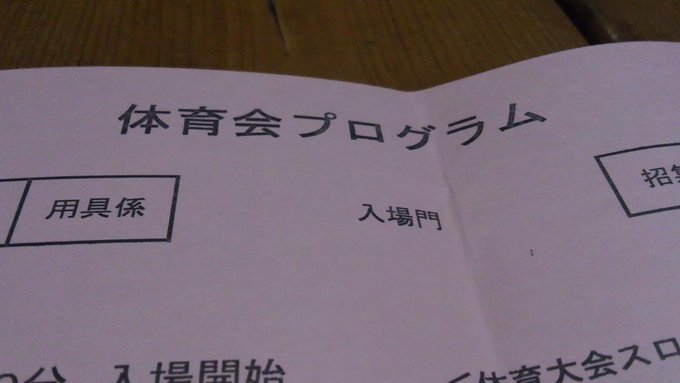 体育会プログラム
用具係
入場門
招
分 入場開始
体育大会スロ